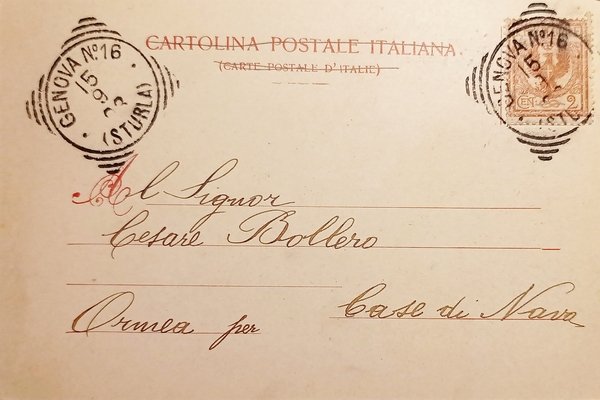 CARTOLINA POSTALE ITALIANA
(CARTE POSTALE D'ITALIE)
GENOVA Nº16
15
9
(STURLA)
GENOVA Nº16
15
CEN. 2
Al Signor
Cesare Bollero
Ormea per Case di Nava